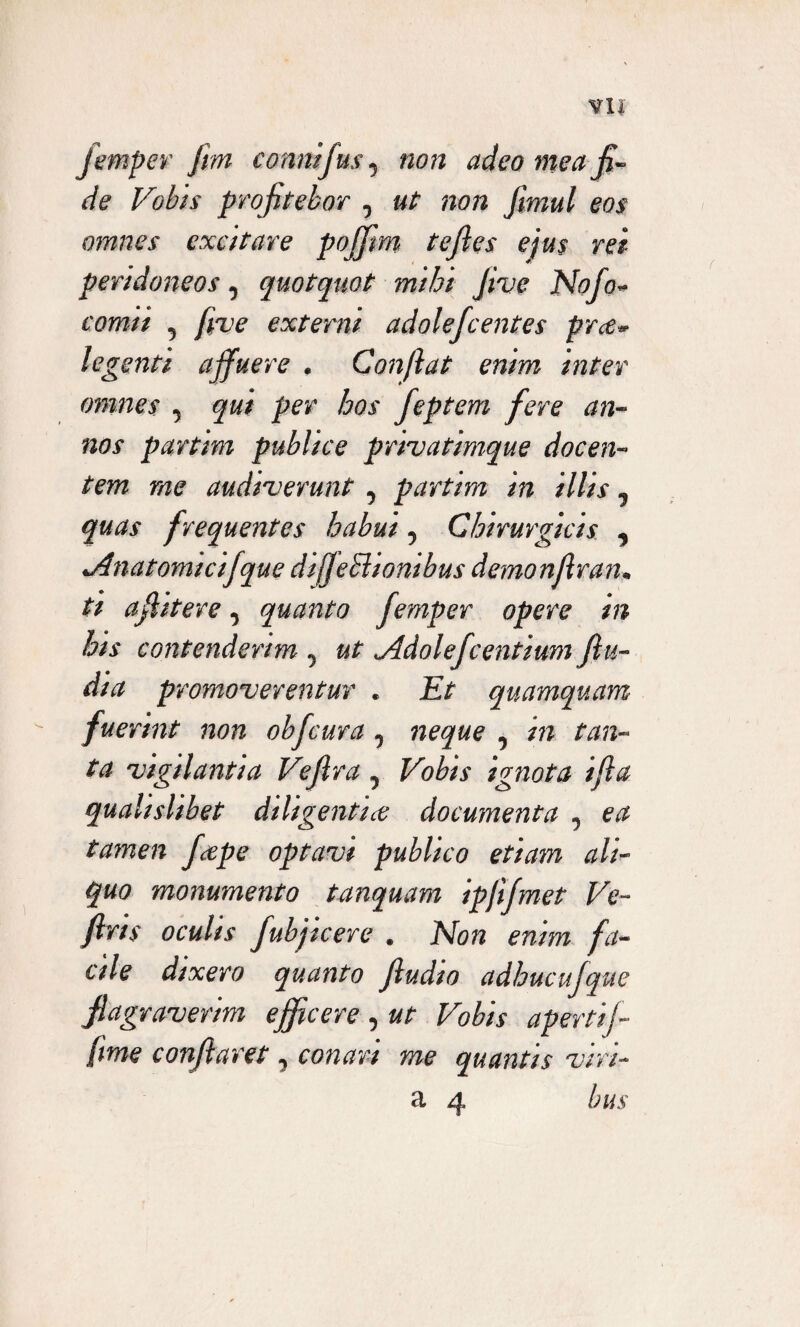 VII
ſemper ſim conniſus, non adeo mea fi-
de Vobis profitebor, ut non ſimul eos
omnes excitare poſſim teſtes ejus rei
peridoneos, quotquot mihi ſive Noſo-
comii, ſive externi adoleſcentes præ-
legenti affuere. Conſtat enim inter
omnes, qui per hos ſeptem fere an-
nos partim publice privatimque docen-
tem me audiverunt, partim in illis,
quas frequentes habui, Chirurgicis,
Anatomiciſque diſſectionibus demonſtran-
ti aſtitere, quanto ſemper opere in
his contenderim, ut Adoleſcentium ſtu-
dia promoverentur. Et quamquam
fuerint non obſcura, neque, in tan-
ta vigilantia Veſtra, Vobis ignota iſta
qualislibet diligentiæ documenta, ea
tamen ſæpe optavi publico etiam ali-
quo monumento tanquam ipſiſmet Ve-
ſtris oculis ſubjicere. Non enim fa-
cile dixero quanto ſtudio adhucuſque
flagraverim efficere, ut Vobis apertiſ-
ſime conſtaret, conari me quantis viri-
a 4 bus